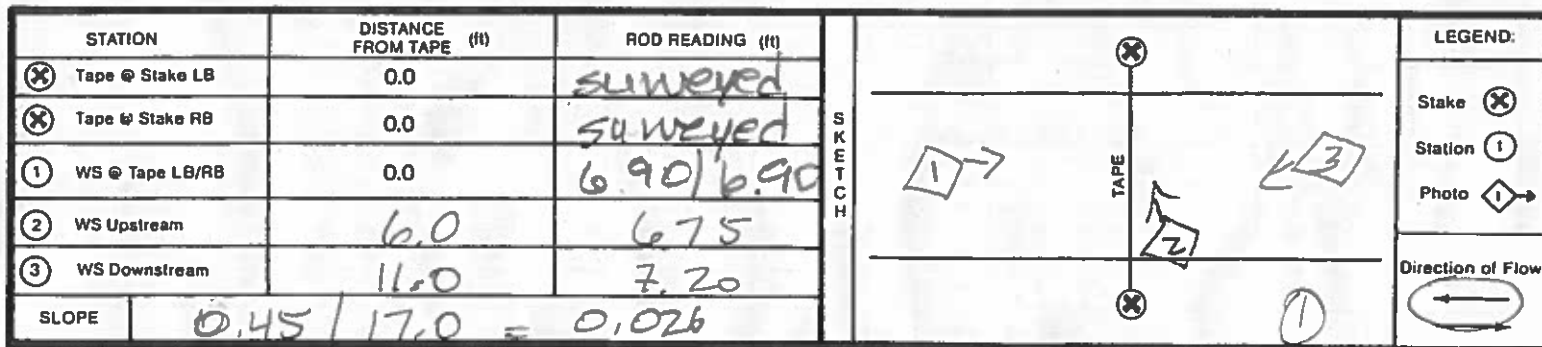 STATION DISTANCE FROM TAPE (ft) ROD READING (ft)
Tape @ Stake LB 0.0 surveyed
Tape @ Stake RB 0.0 surveyed
1 WS @ Tape LB/RB 0.0 6.90/6.90
2 WS Upstream 6.0 6.75
3 WS Downstream 11.0 7.20
SLOPE 0.45 / 17.0 = 0.026
SKETCH
TAPE
1
2
3
1
LEGEND:
Stake
Station 1
Photo 1
Direction of Flow